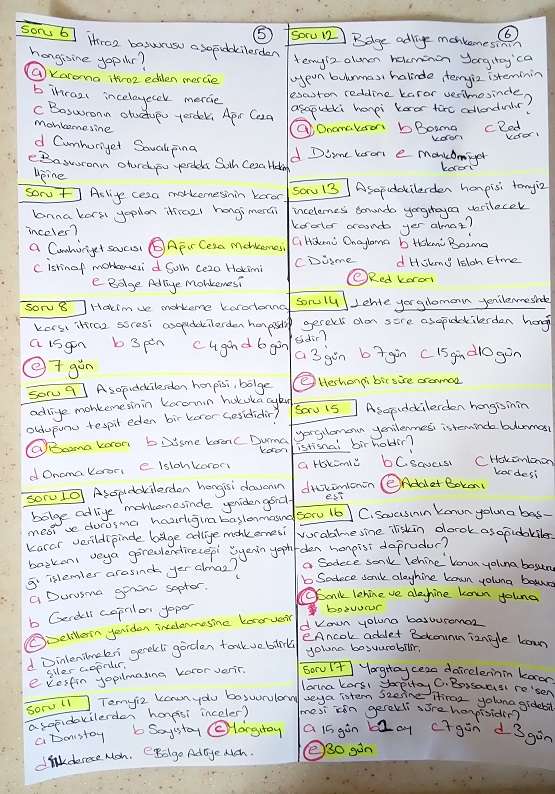 5
Soru 6 İtiraz başvurusu aşağıdakilerden
hangisine yapılır?
a Kararına itiraz edilen mercie
b İtirazı inceleyecek mercie
c Başvuranın oturduğu yerdeki Ağır Ceza
mahkemesine
d Cumhuriyet Savcılığına
e Başvuranın oturduğu yerdeki Sulh Ceza Hakim
liğine
Soru 7 Asliye ceza mahkemesinin karar
larına karşı yapılan itirazı hangi mercii
inceler?
a Cumhuriyet savcısı b Ağır Ceza Mahkemesi
c İstinaf mahkemesi d Sulh Ceza Hakimi
e Bölge Adliye Mahkemesi
Soru 8 Hakim ve mahkeme kararlarına
karşı itiraz süresi aşağıdakilerden hangisidir
a 15 gün b 3 gün c 4 gün d 6 gün
e 7 gün
Soru 9 Aşağıdakilerden hangisi, bölge
adliye mahkemesinin kararının hukuka aykırı
olduğunu tespit eden bir karar çeşididir?
a Bozma kararı b Düşme kararı c Durma
kararı
d Onama kararı e Islah kararı
Soru 10 Aşağıdakilerden hangisi davanın
bölge adliye mahkemesinde yeniden görül-
mesi ve duruşma hazırlığına başlanmasına
karar verildiğinde bölge adliye mahkemesi
başkanı veya görevlendireceği üyenin yaptı-
ğı işlemler arasında yer almaz?
a Duruşma gününü saptar.
b Gerekli çağrıları yapar
c Delillerin yeniden incelenmesine karar verir
d Dinlenilmeleri gerekli görülen tanık ve bilirki
şiler çağırılır.
e Keşfin yapılmasına karar verir.
Soru 11 Temyiz kanun yolu başvurularını
aşağıdakilerden hangisi inceler?
a Danıştay b Sayıştay c Yargıtay
d İlk derece Mah. e Bölge Adliye Mah.
6
Soru 12 Bölge adliye mahkemesinin
temyiz olunan hükmünün Yargıtayca
uygun bulunması halinde temyiz isteminin
esastan reddine karar verilmesinde,
aşağıdaki hangi karar türü adlandırılır?
a Onama kararı b Bozma
kararı c Red
kararı
d Düşme kararı e Mahkumiyet
kararı
Soru 13 Aşağıdakilerden hangisi temyiz
incelemesi sonunda yargıtayca verilecek
kararlar arasında yer almaz?
a Hükmü Onaylama b Hükmü Bozma
c Düşme d Hükmü Islah Etme
e Red kararı
Soru 14 Lehte yargılamanın yenilenmesinde
gerekli olan süre aşağıdakilerden hangi
sidir?
a 3 gün b 7 gün c 15 gün d 10 gün
e Herhangi bir süre aranmaz
Soru 15 Aşağıdakilerden hangisinin
yargılamanın yenilenmesi isteminde bulunması
istisnai bir haldir?
a Hükümlü b C savcısı c Hükümlünün
kardeşi
d Hükümlünün
eşi e Adalet Bakanı
Soru 16 C. Savcısının kanun yoluna baş-
vurabilmesine ilişkin olarak aşağıdakiler-
den hangisi doğrudur?
a Sadece sanık lehine kanun yoluna başvurur
b Sadece sanık aleyhine kanun yoluna başvurur
c Sanık lehine ve aleyhine kanun yoluna
başvurur
d Kanun yoluna başvuramaz
e Ancak adalet Bakanının izniyle kanun
yoluna başvurabilir.
Soru 17 Yargıtay ceza dairelerinin karar
larına karşı Yargıtay C. Başsavcısı re'sen
veya istem üzerine itiraz yoluna gidebil
mesi için gerekli süre hangisidir?
a 15 gün b 1 ay c 7 gün d 3 gün
e 30 gün